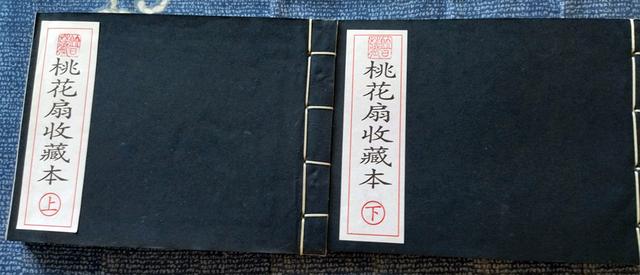 桃花扇收藏本
上
桃花扇收藏本
下